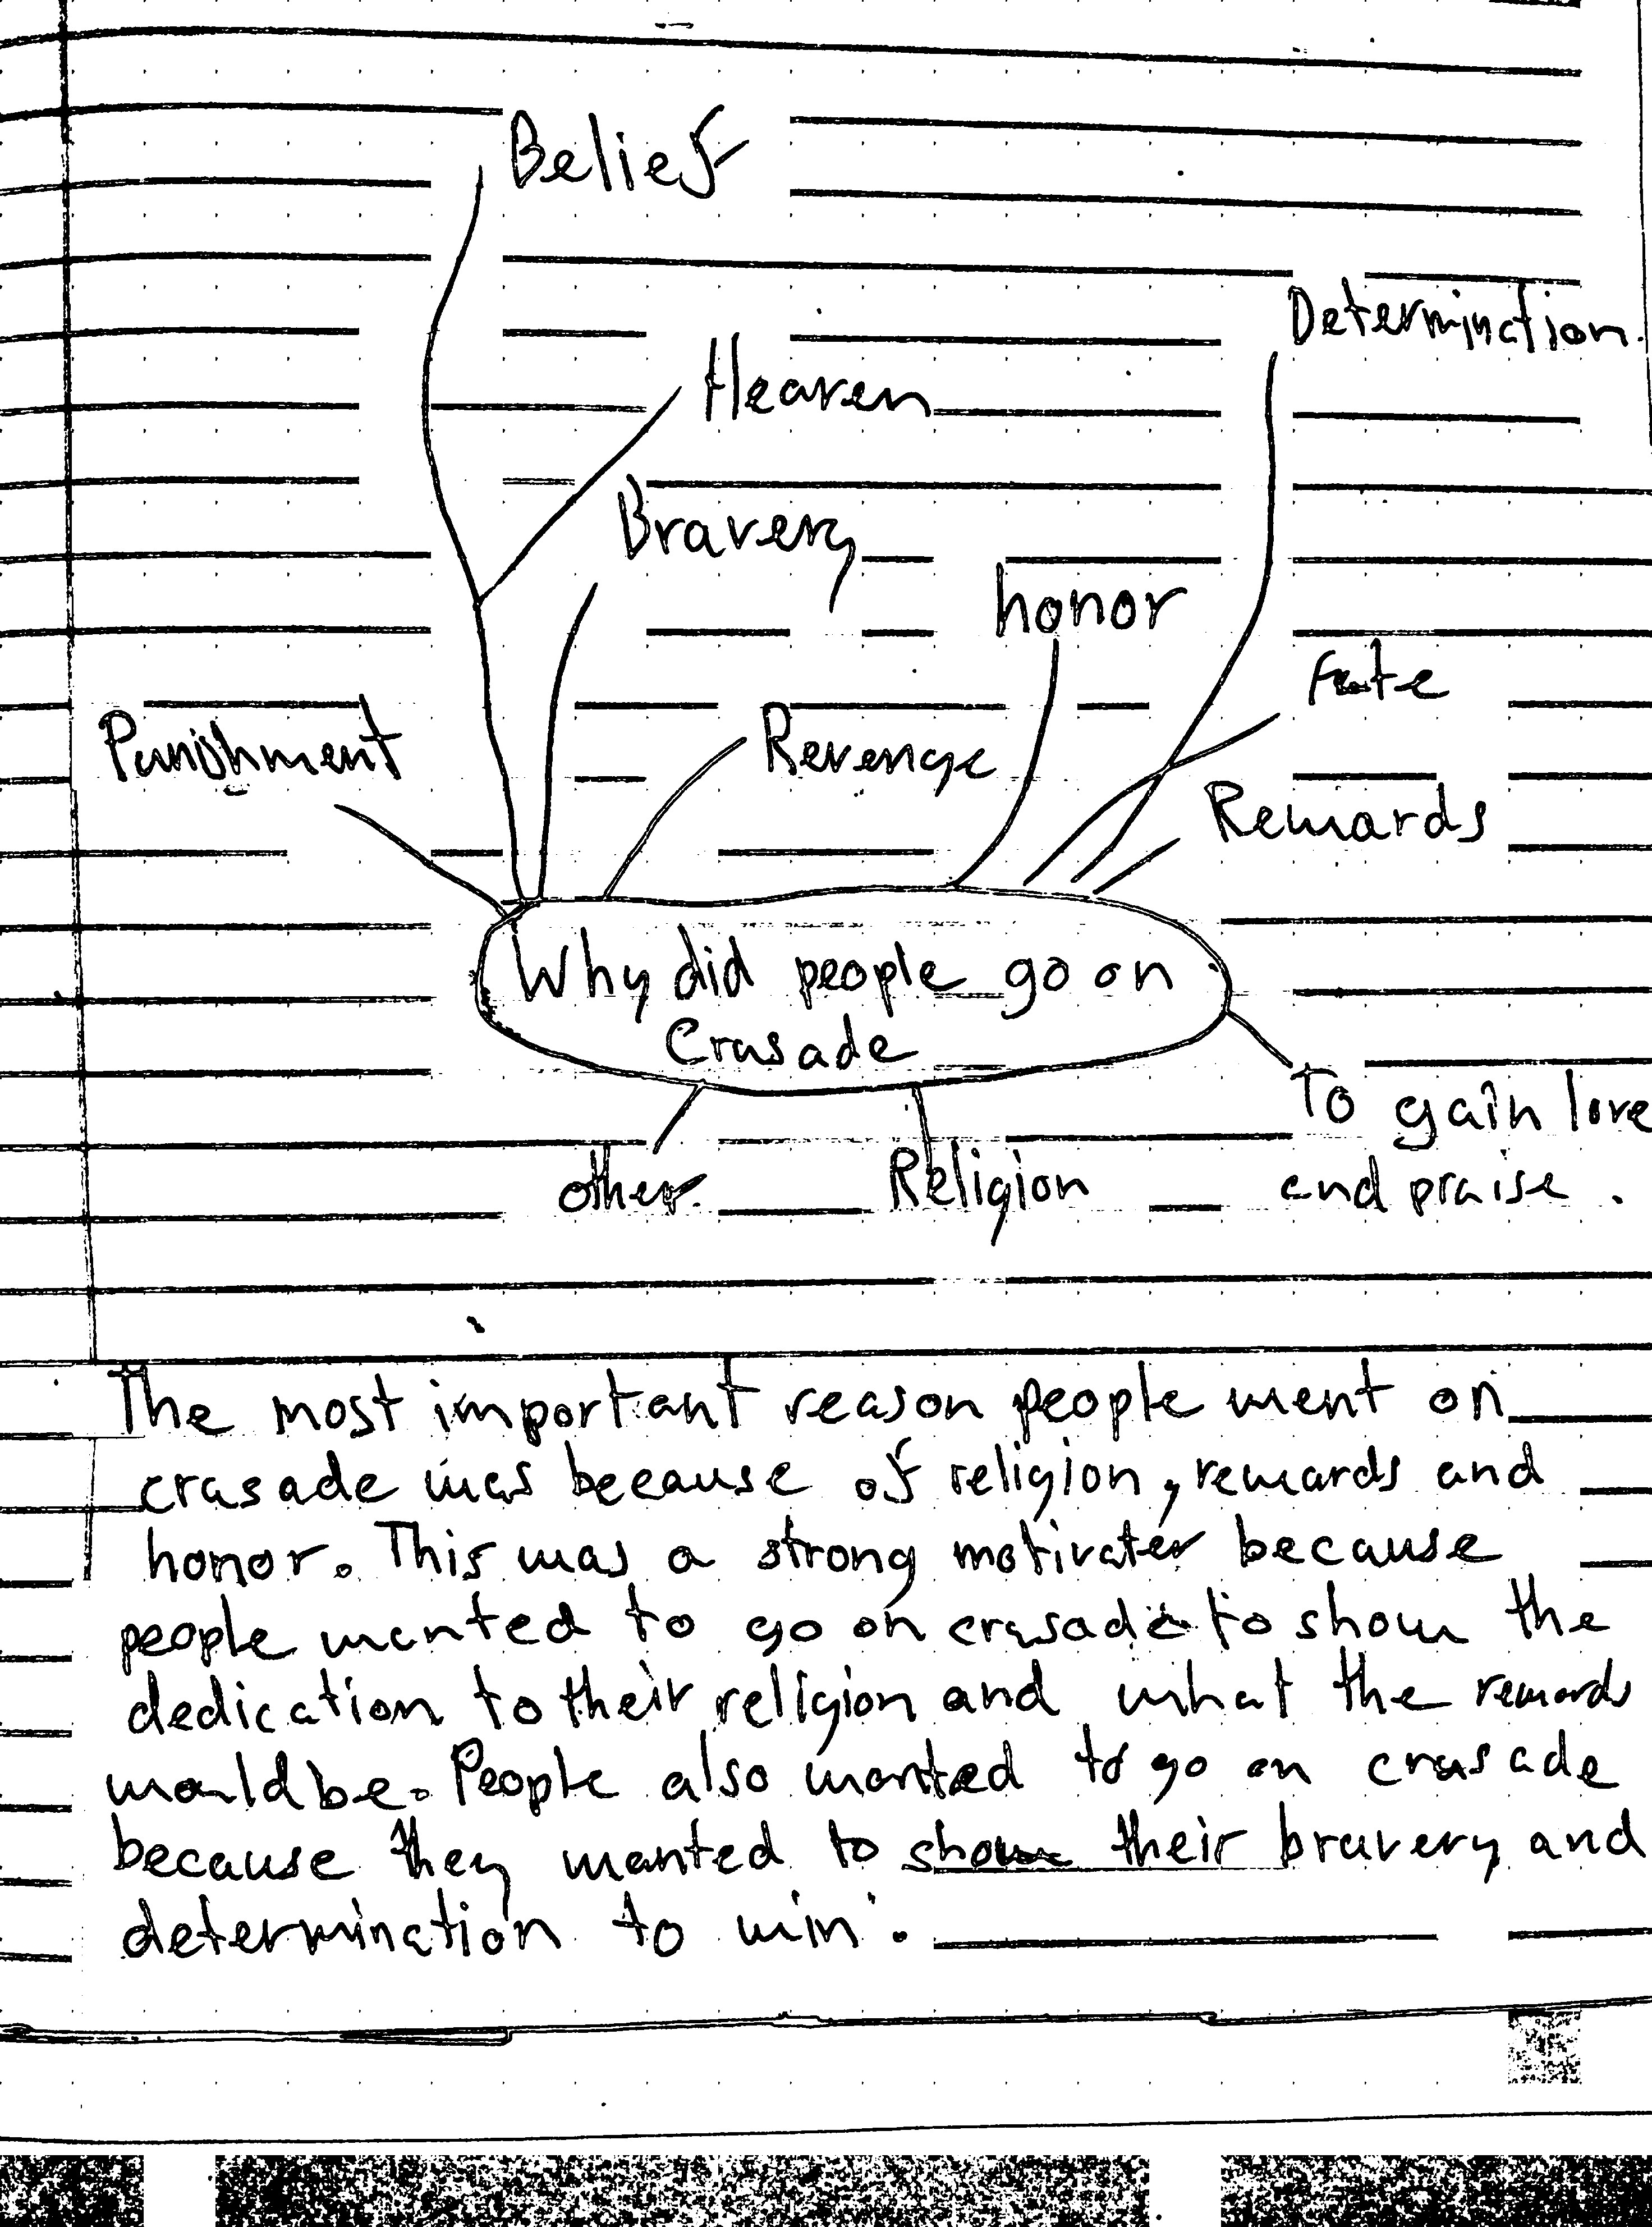 Belief
Determination.
Heaven
Bravery
honor
Fate
Punishment
Revenge
Rewards
Why did people go on
Crusade
To gain love
and praise.
other.
Religion
The most important reason people went on
crasade was because of religion, rewards and
honor. This was a strong motivater because
people wanted to go on crasade to show the
dedication to their religion and what the rewards
would be. People also wanted to go on crusade
because they wanted to show their bravery and
determination to win.